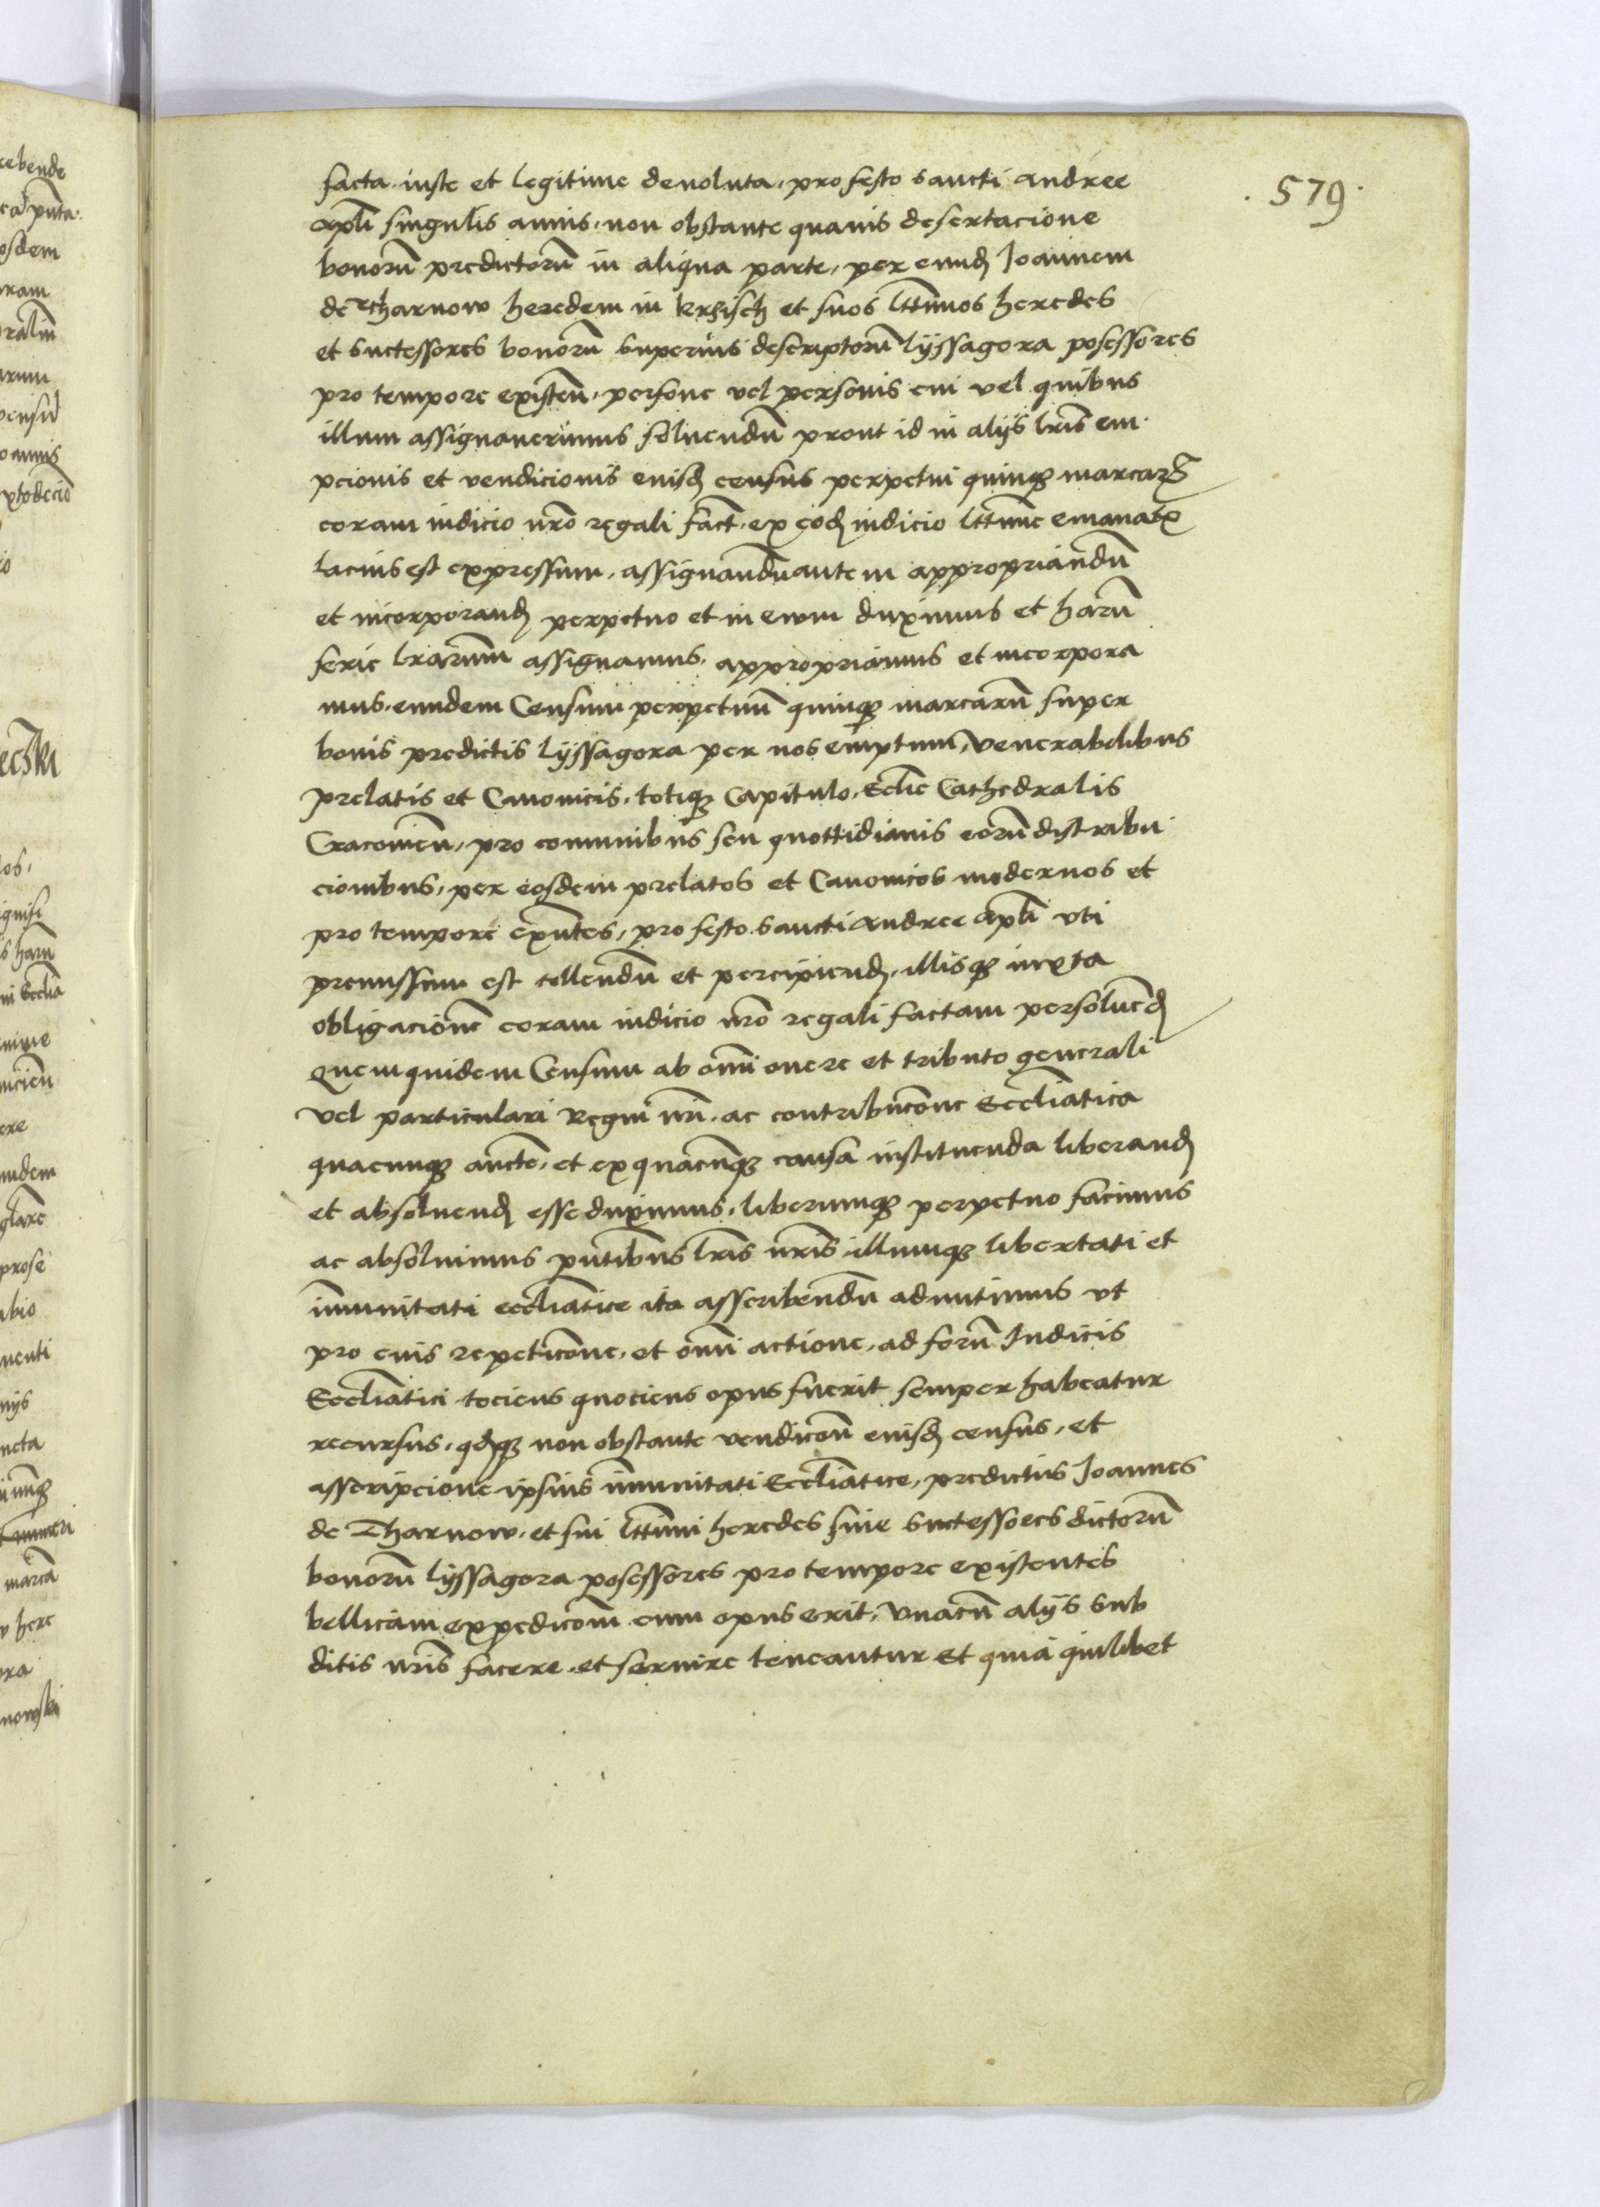 . 579 .
facta. iuste et legitime deuoluta, pro festo sancti Andree
apli singulis annis, non obstante quauis desertacione
bonorū predictorū in aliqua parte, per eund Joannem
de Tharnow heredem in Krzisch et suos lttimos heredes
et successores bonorū superius descriptorū lÿssagora possessores
pro tempore existen̄, persone vel personis cui vel quibus
illum assignauerimus soluendū prout id in alÿs lris em
pcionis et vendicionis eiusd census perpetui quinq marcarz
coram iudicio nro regali fact, ex eod iudicio lttime emanatx
lacius est expressum, assignandū autem appropriandū
et incorporand perpetuo et in ewm duximus et harū
serie lrarum assignamus, appropriamus et incorpora
mus, eundem Censum perpetuū quinq marcarū super
bonis predictis lÿssagora per nos emptum, venerabilibus
prelatis et Canonicis, totiq Capitulo, Eclie Cathedralis
Cracouien̄, pro comunibus seu quottidianis eorū distribu
cionibus, per eosdem prelatos et Canonicos modernos et
pro tempore exn̄tes, pro festo sancti Andree apli vti
premissum est tollendū et percipiend, illisq iuxta
obligacione coram iudicio nro regali factam persoluend
Quemquidem Censum ab omni onere et tributo generali
vel particulari Regni nri, ac contribucone Eccliatica
quacunq aucte, et ex quacunq causa instituenda liberand
et absoluend esse duximus, liberumq perpetuo facimus
ac absoluimus pntibus lris nris illumq libertati et
imunitati eccliatice ita asscribendū admittimus vt
pro eius repeticone, et omni actione, ad forū Judicis
Eccliatici tociens quociens opus fuerit semper habeatur
recursus, qdq non obstante vendicon̄ eiusd census, et
asscripcione ipsius imunitati Eccliatice, predictus Joannes
de Tharnow, et sui lttimi heredes siue successores dictorū
bonorū lÿssagora possessores pro tempore existentes
bellicam expedicom̄ cum opus erit, vnacū alÿs sub
ditis nris facere et seruire teneantur Et quia quilibet